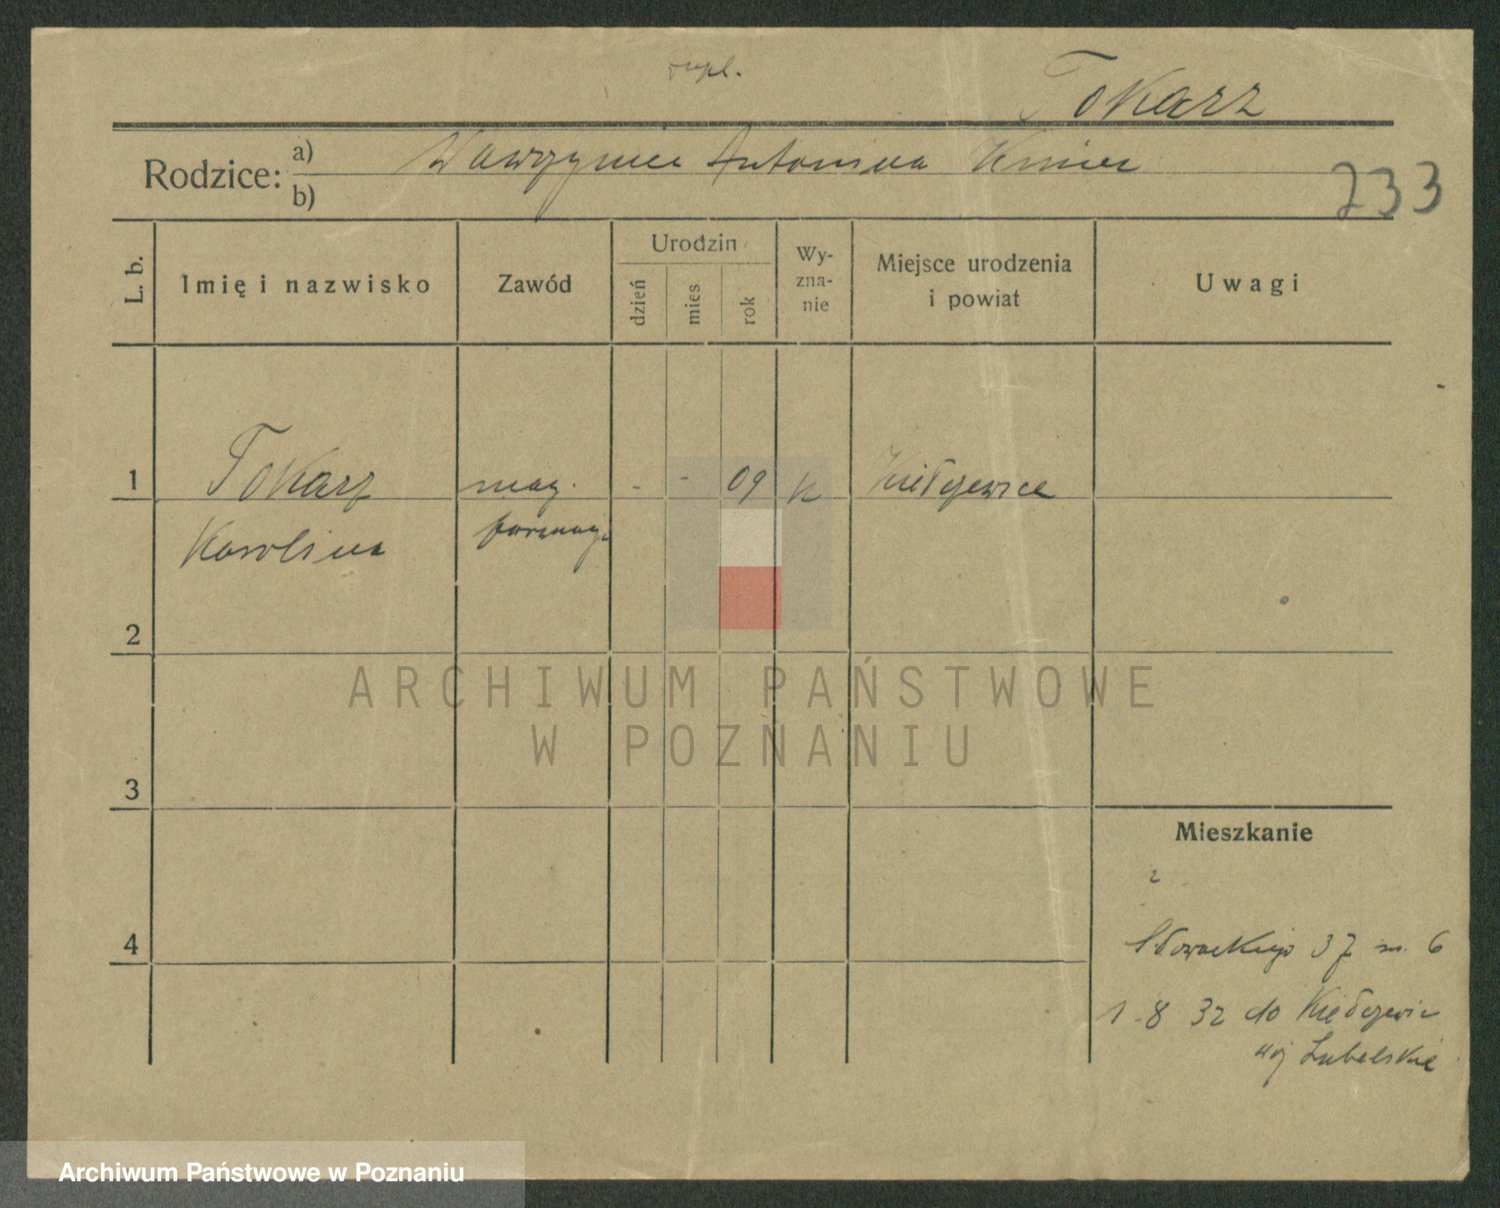 dupl.
Tokarz
Rodzice: a) Wawrzyniec Antonina Kmieć
b)
733
L. b.
Imię i nazwisko
Zawód
Urodzin
dzień
mies
rok
Wy-
zna-
nie
Miejsce urodzenia
i powiat
Uwagi
1 Tokarz mag. - - 09 k Kiełczewice
Karolina farmacji
2
ARCHIWUM PAŃSTWOWE
W POZNANIU
3
Mieszkanie
4
Słowackiego 37 m. 6
1 8 32 do Kiełczewic
woj Lubelskie
Archiwum Państwowe w Poznaniu